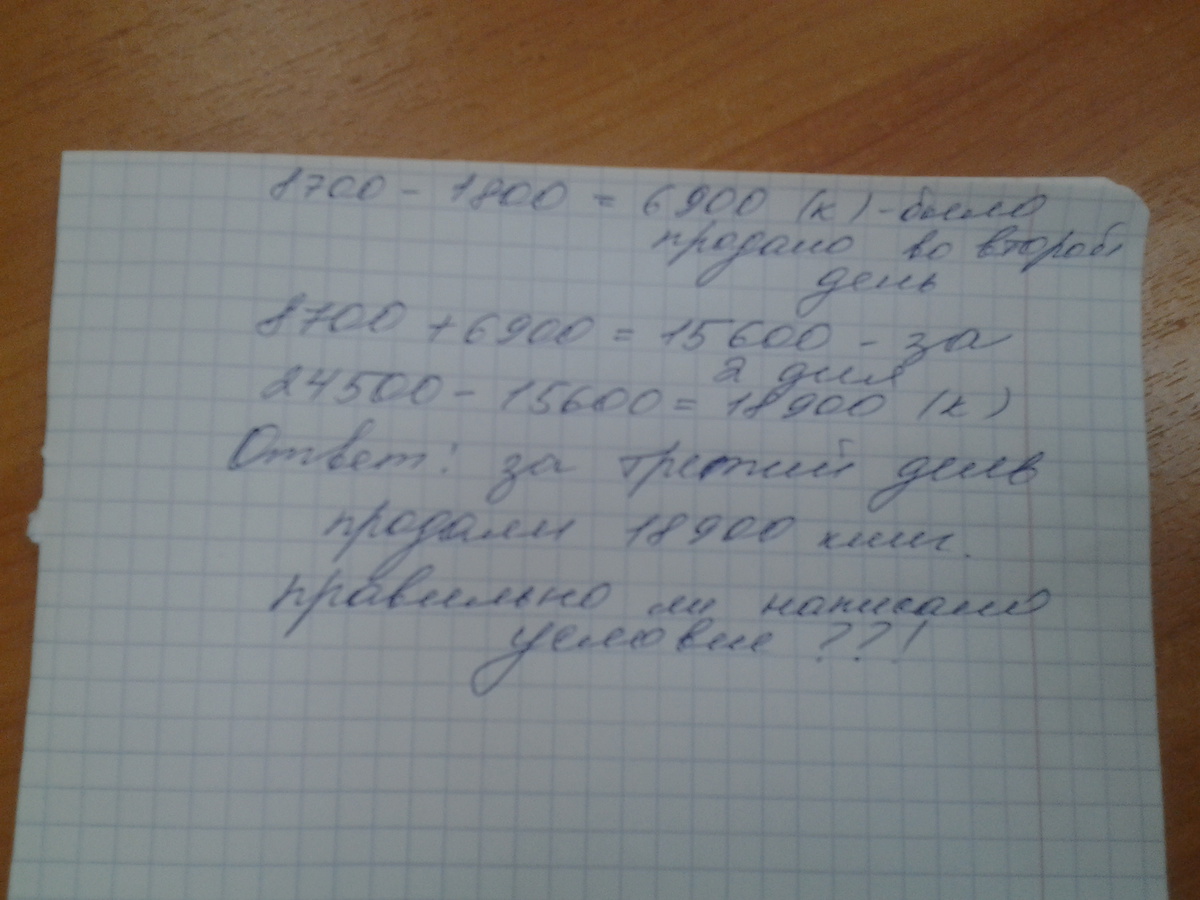 8700 - 1800 = 6900 (к) - было
продано во второй
день
8700 + 6900 = 15600 - за
2 дня
24500 - 15600 = 18900 (к)
Ответ: за третий день
продали 18900 книг.
правильно ли написано
условие ??!